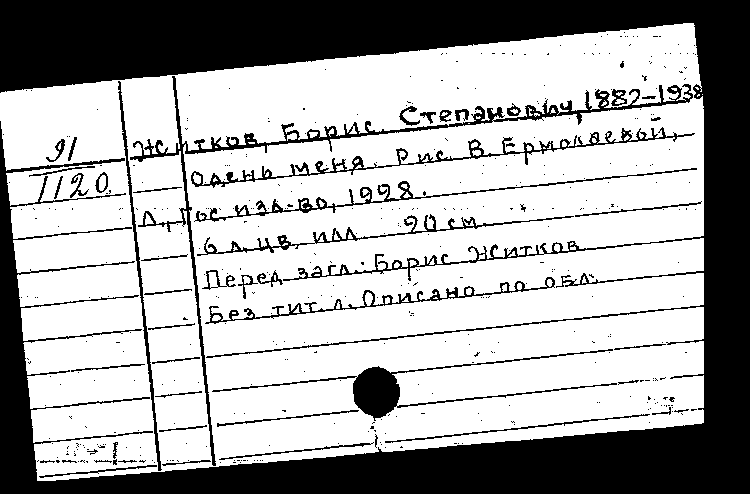 91
1120
Житков, Борис Степанович, 1882-1938
Одень меня. Рис. В. Ермолаевой,
Л., Гос. изд-во, 1928.
6 л. цв. илл. 20 см.
Перед загл.: Борис Житков
Без тит. л. Описано по обл.